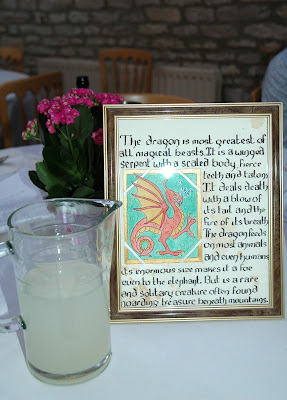 The dragon is most greatest of
all magical beasts. It is a winged
serpent with a scaled body, fierce
teeth and talons.
It deals death
with a blow of
its tail and the
fire of its breath
The dragon feeds
on most animals
and even humans
its enormous size makes it a foe
even to the elephant. But is a rare
and solitary creature often found
hoarding treasure beneath mountains.